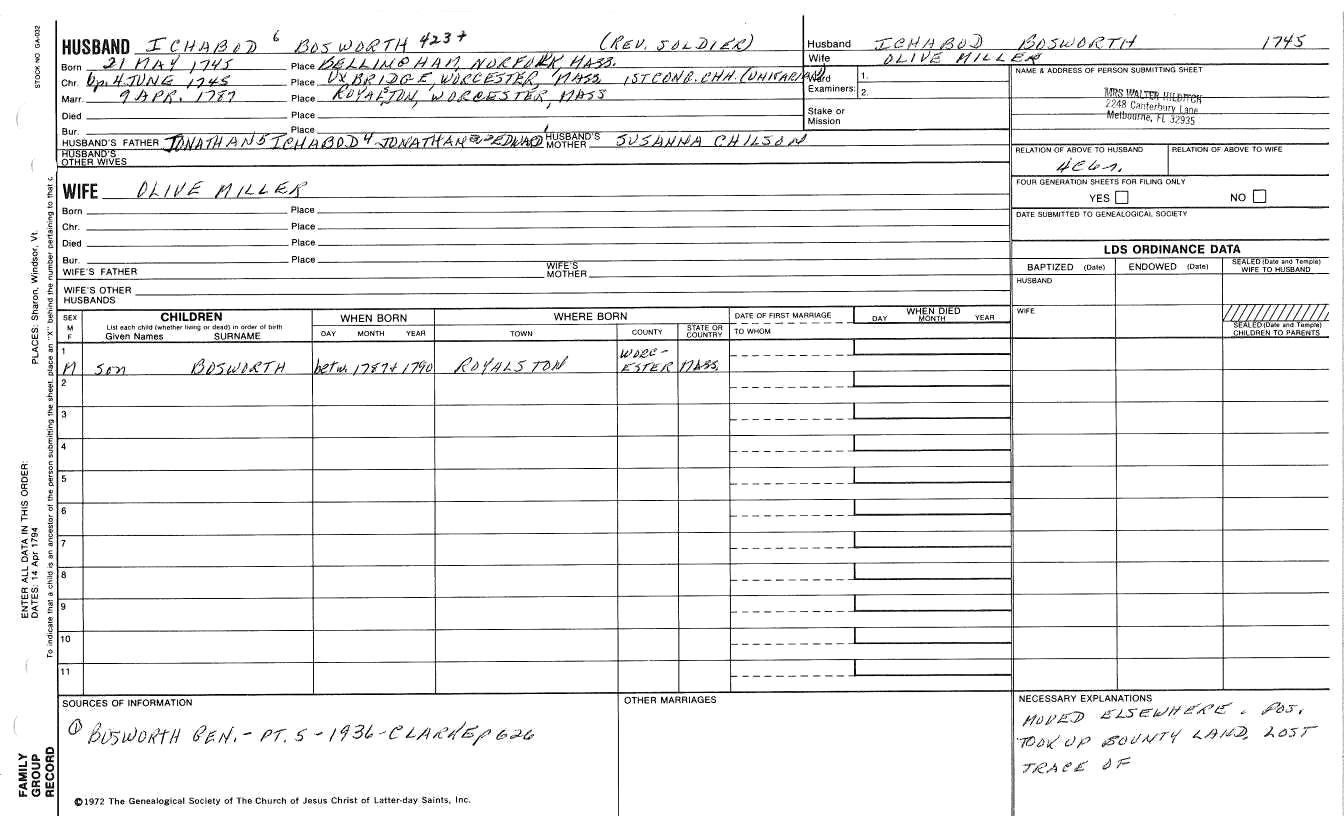 STOCK NO. GA-032
HUSBAND ICHABOD 6 BOSWORTH 423+ (REV. SOLDIER)
Born 21 MAY 1745 Place BELLINGHAM, NORFOLK, MASS.
Chr. bp. 4 JUNE 1745 Place UXBRIDGE, WORCESTER, MASS 1ST CONG. CHH. (UNITARIAN)
Marr. 9 APR. 1787 Place ROYALSTON, WORCESTER, MASS
Died Place
Bur. Place
HUSBAND'S FATHER JONATHAN 5 ICHABOD 4 JONATHAN EDWARD 1 HUSBAND'S MOTHER SUSANNA CHILSON
HUSBAND'S OTHER WIVES
Husband ICHABOD BOSWORTH 1745
Wife OLIVE MILLER
Ward 1.
Examiners: 2.
Stake or
Mission
NAME & ADDRESS OF PERSON SUBMITTING SHEET
MRS WALTER HILDITCH
2248 Canterbury Lane
Melbourne, FL 32935
RELATION OF ABOVE TO HUSBAND RELATION OF ABOVE TO WIFE
4C6r.
FOUR GENERATION SHEETS FOR FILING ONLY
YES NO
DATE SUBMITTED TO GENEALOGICAL SOCIETY
WIFE OLIVE MILLER
Born Place
Chr. Place
Died Place
Bur. Place
WIFE'S FATHER WIFE'S MOTHER
WIFE'S OTHER HUSBANDS
LDS ORDINANCE DATA
BAPTIZED (Date) ENDOWED (Date) SEALED (Date and Temple) WIFE TO HUSBAND
HUSBAND
WIFE
SEALED (Date and Temple) CHILDREN TO PARENTS
SEX M F
CHILDREN
List each child (whether living or dead) in order of birth
Given Names SURNAME
WHEN BORN
DAY MONTH YEAR
WHERE BORN
TOWN COUNTY STATE OR COUNTRY
DATE OF FIRST MARRIAGE
TO WHOM
WHEN DIED
DAY MONTH YEAR
1
M son BOSWORTH betw. 1787+1790 ROYALSTON WORC-ESTER MASS.
2
3
4
5
6
7
8
9
10
11
SOURCES OF INFORMATION
① BOSWORTH GEN. - PT. 5 - 1936 - CLARKE p 626
OTHER MARRIAGES
NECESSARY EXPLANATIONS
MOVED ELSEWHERE. POS.
TOOK UP BOUNTY LAND, LOST
TRACE OF
©1972 The Genealogical Society of The Church of Jesus Christ of Latter-day Saints, Inc.
FAMILY
GROUP
RECORD
ENTER ALL DATA IN THIS ORDER:
DATES: 14 Apr 1794
PLACES: Sharon, Windsor, Vt.
To indicate that a child is an ancestor of the person submitting the sheet, place an "X" behind the number pertaining to that c